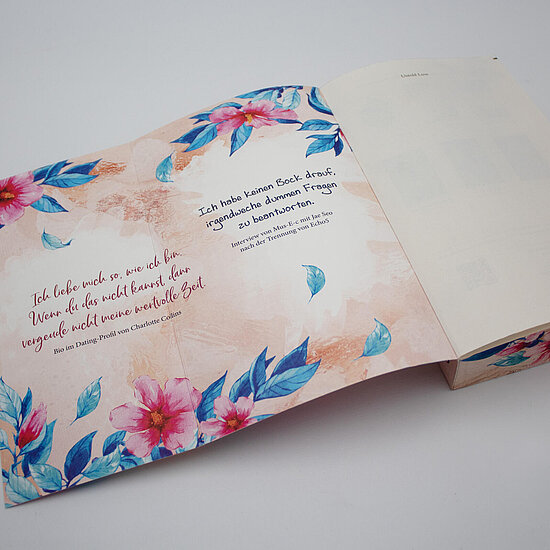 Ich liebe mich so, wie ich bin.
Wenn du das nicht kannst, dann
vergeude nicht meine wertvolle Zeit.
Bio im Dating-Profil von Charlotte Collins
Ich habe keinen Bock drauf,
irgendweche dummen Fragen
zu beantworten.
Interview von Mus-E-c mit Jae Seo
nach der Trennung von Echo5
Untold Love